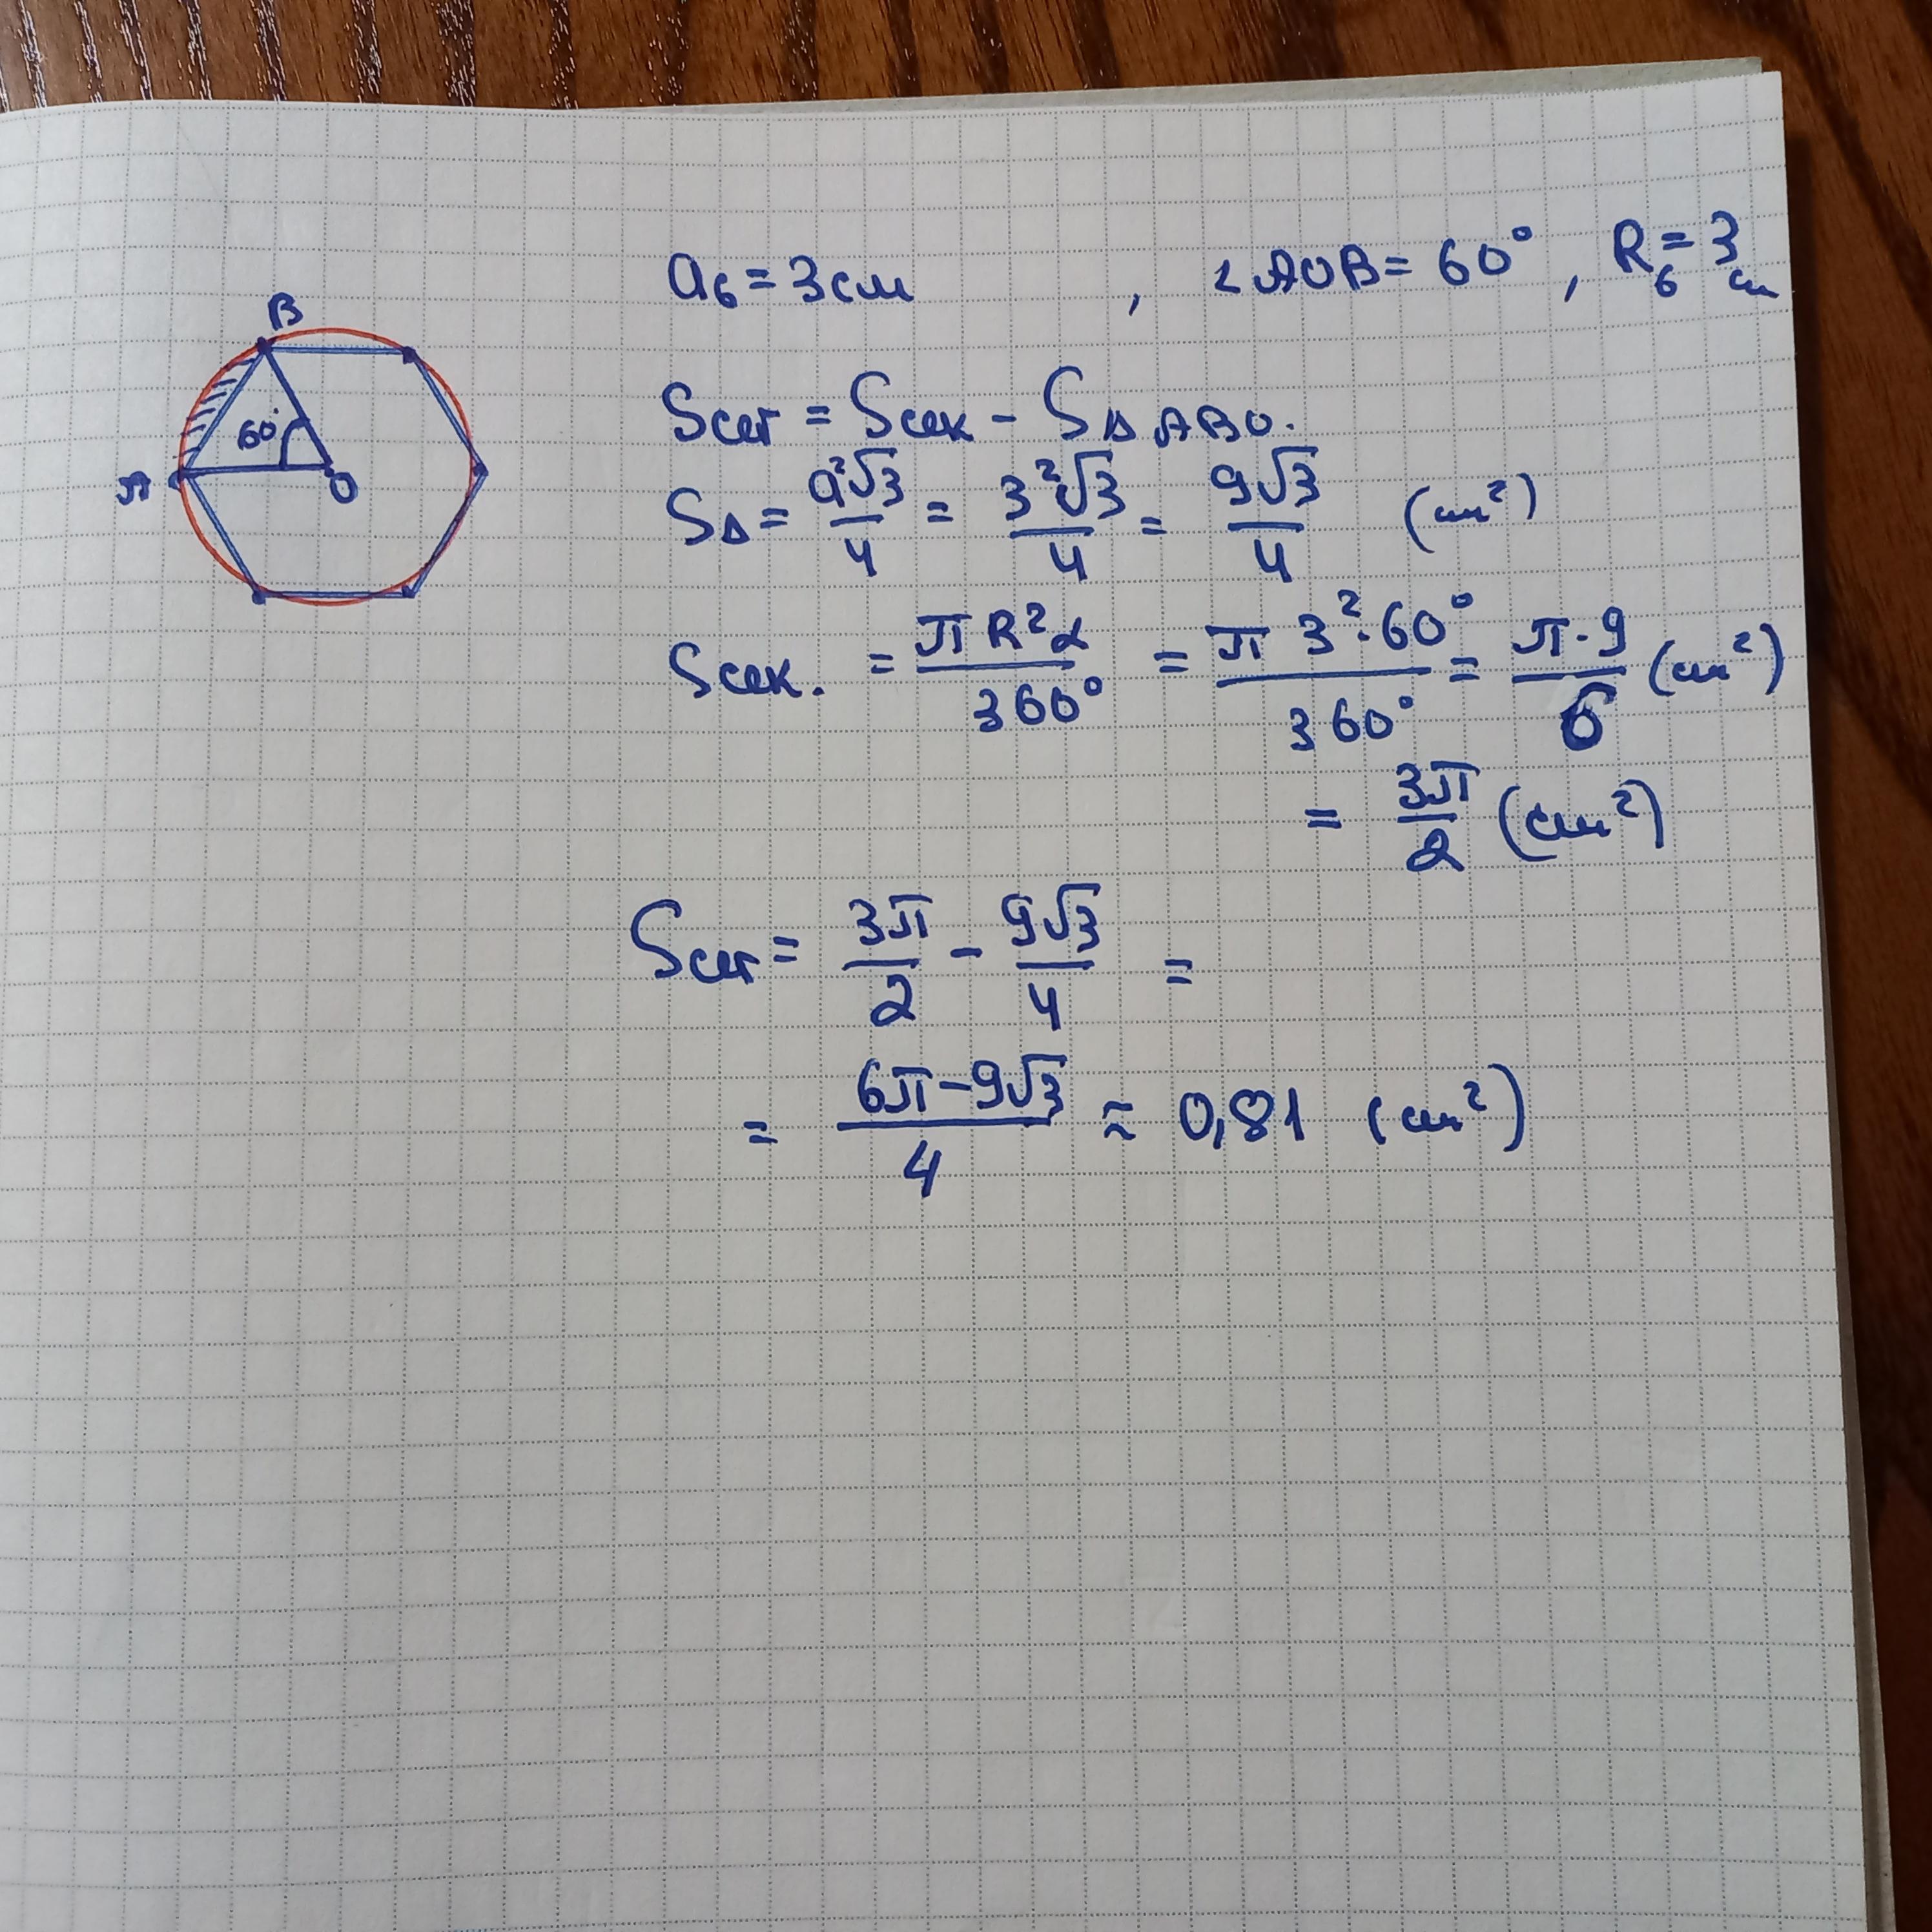 a₆ = 3 см , ∠AOB = 60° , R₆ = 3 см
B
60°
A
O
Sсег = Sсек - S△ABO.
S△ = a²√3/4 = 3²√3/4 = 9√3/4 (см²)
Sсек. = πR²α/360° = π 3²·60°/360° = π·9/6 (см²)
= 3π/2 (см²)
Sсег = 3π/2 - 9√3/4 =
= (6π-9√3)/4 ≈ 0,81 (см²)